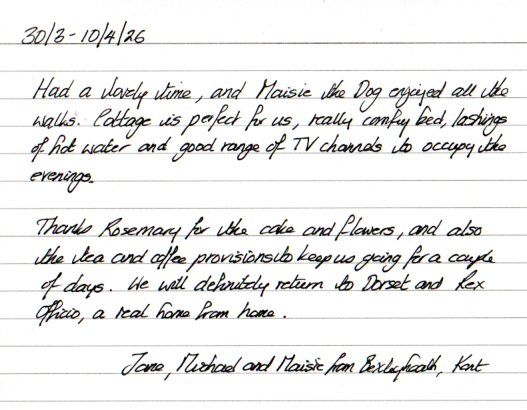 30/3 - 10/4/26
Had a lovely time, and Maisie the Dog enjoyed all the
walks. Cottage is perfect for us, really comfy bed, lashings
of hot water and good range of TV channels to occupy the
evenings.
Thanks Rosemary for the cake and flowers, and also
the tea and coffee provisions to keep us going for a couple
of days. We will definitely return to Dorset and Rex
Officio, a real home from home.
Jane, Michael and Maisie from Bexleyheath, Kent